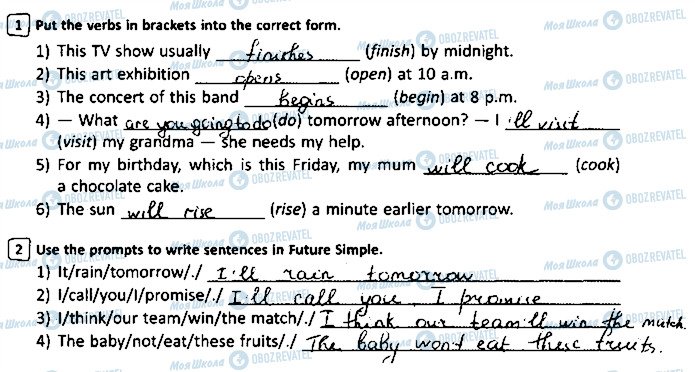 1 Put the verbs in brackets into the correct form.
1) This TV show usually finishes (finish) by midnight.
2) This art exhibition opens (open) at 10 a.m.
3) The concert of this band begins (begin) at 8 p.m.
4) — What are you going to do (do) tomorrow afternoon? — I 'll visit
(visit) my grandma — She needs my help.
5) For my birthday, which is this Friday, my mum will cook (cook)
a chocolate cake.
6) The sun will rise (rise) a minute earlier tomorrow.
2 Use the prompts to write sentences in Future Simple.
1) It/rain/tomorrow/./ I'll rain tomorrow
2) I/call/you/I/promise/./ I'll call you, I promise
3) I/think/our team/win/the match/./ I think our team'll win the match.
4) The baby/not/eat/these fruits/./ The baby won't eat these fruits.
Моя Школа OBOZREVATEL